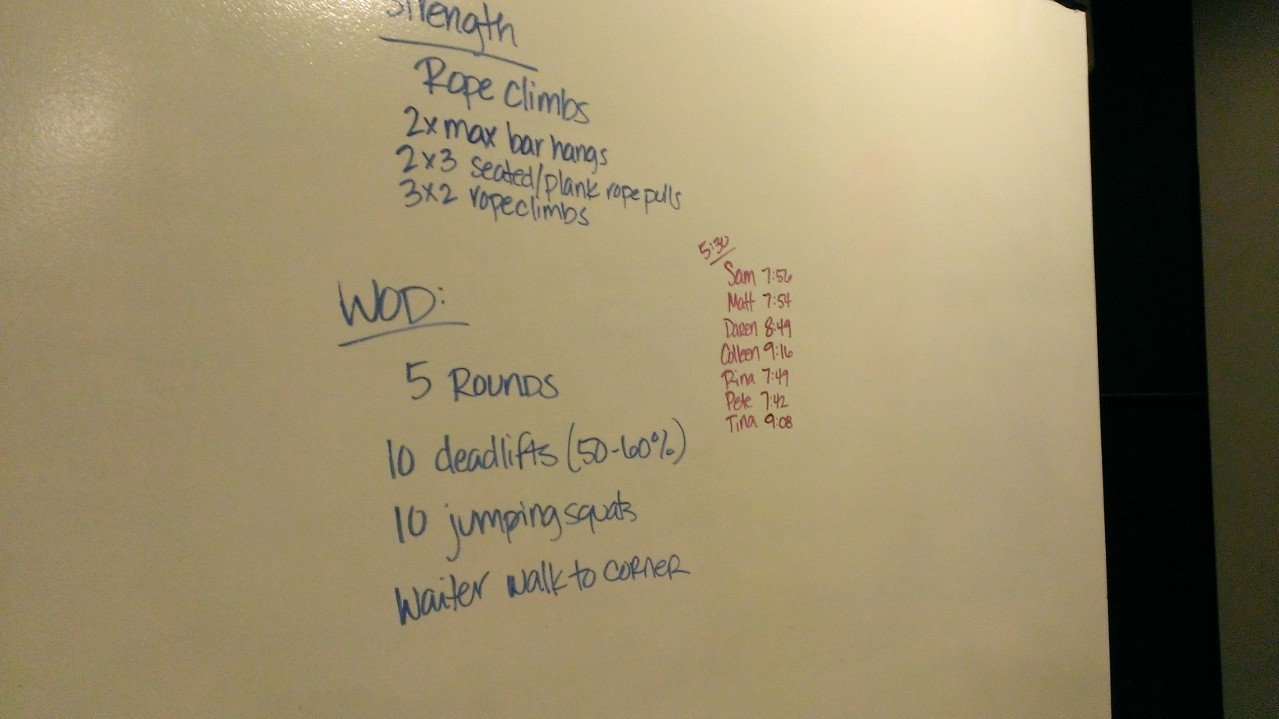 Strength
Rope Climbs
2x max bar hangs
2x3 seated/plank rope pulls
3x2 rope climbs
WOD:
5 ROUNDS
10 deadlifts (50-60%)
10 jumping squats
Waiter walk to CORNER
5:30
Sam 7:56
Matt 7:54
Daren 8:49
Colleen 9:16
Rina 7:49
Pete 7:42
Tina 9:08